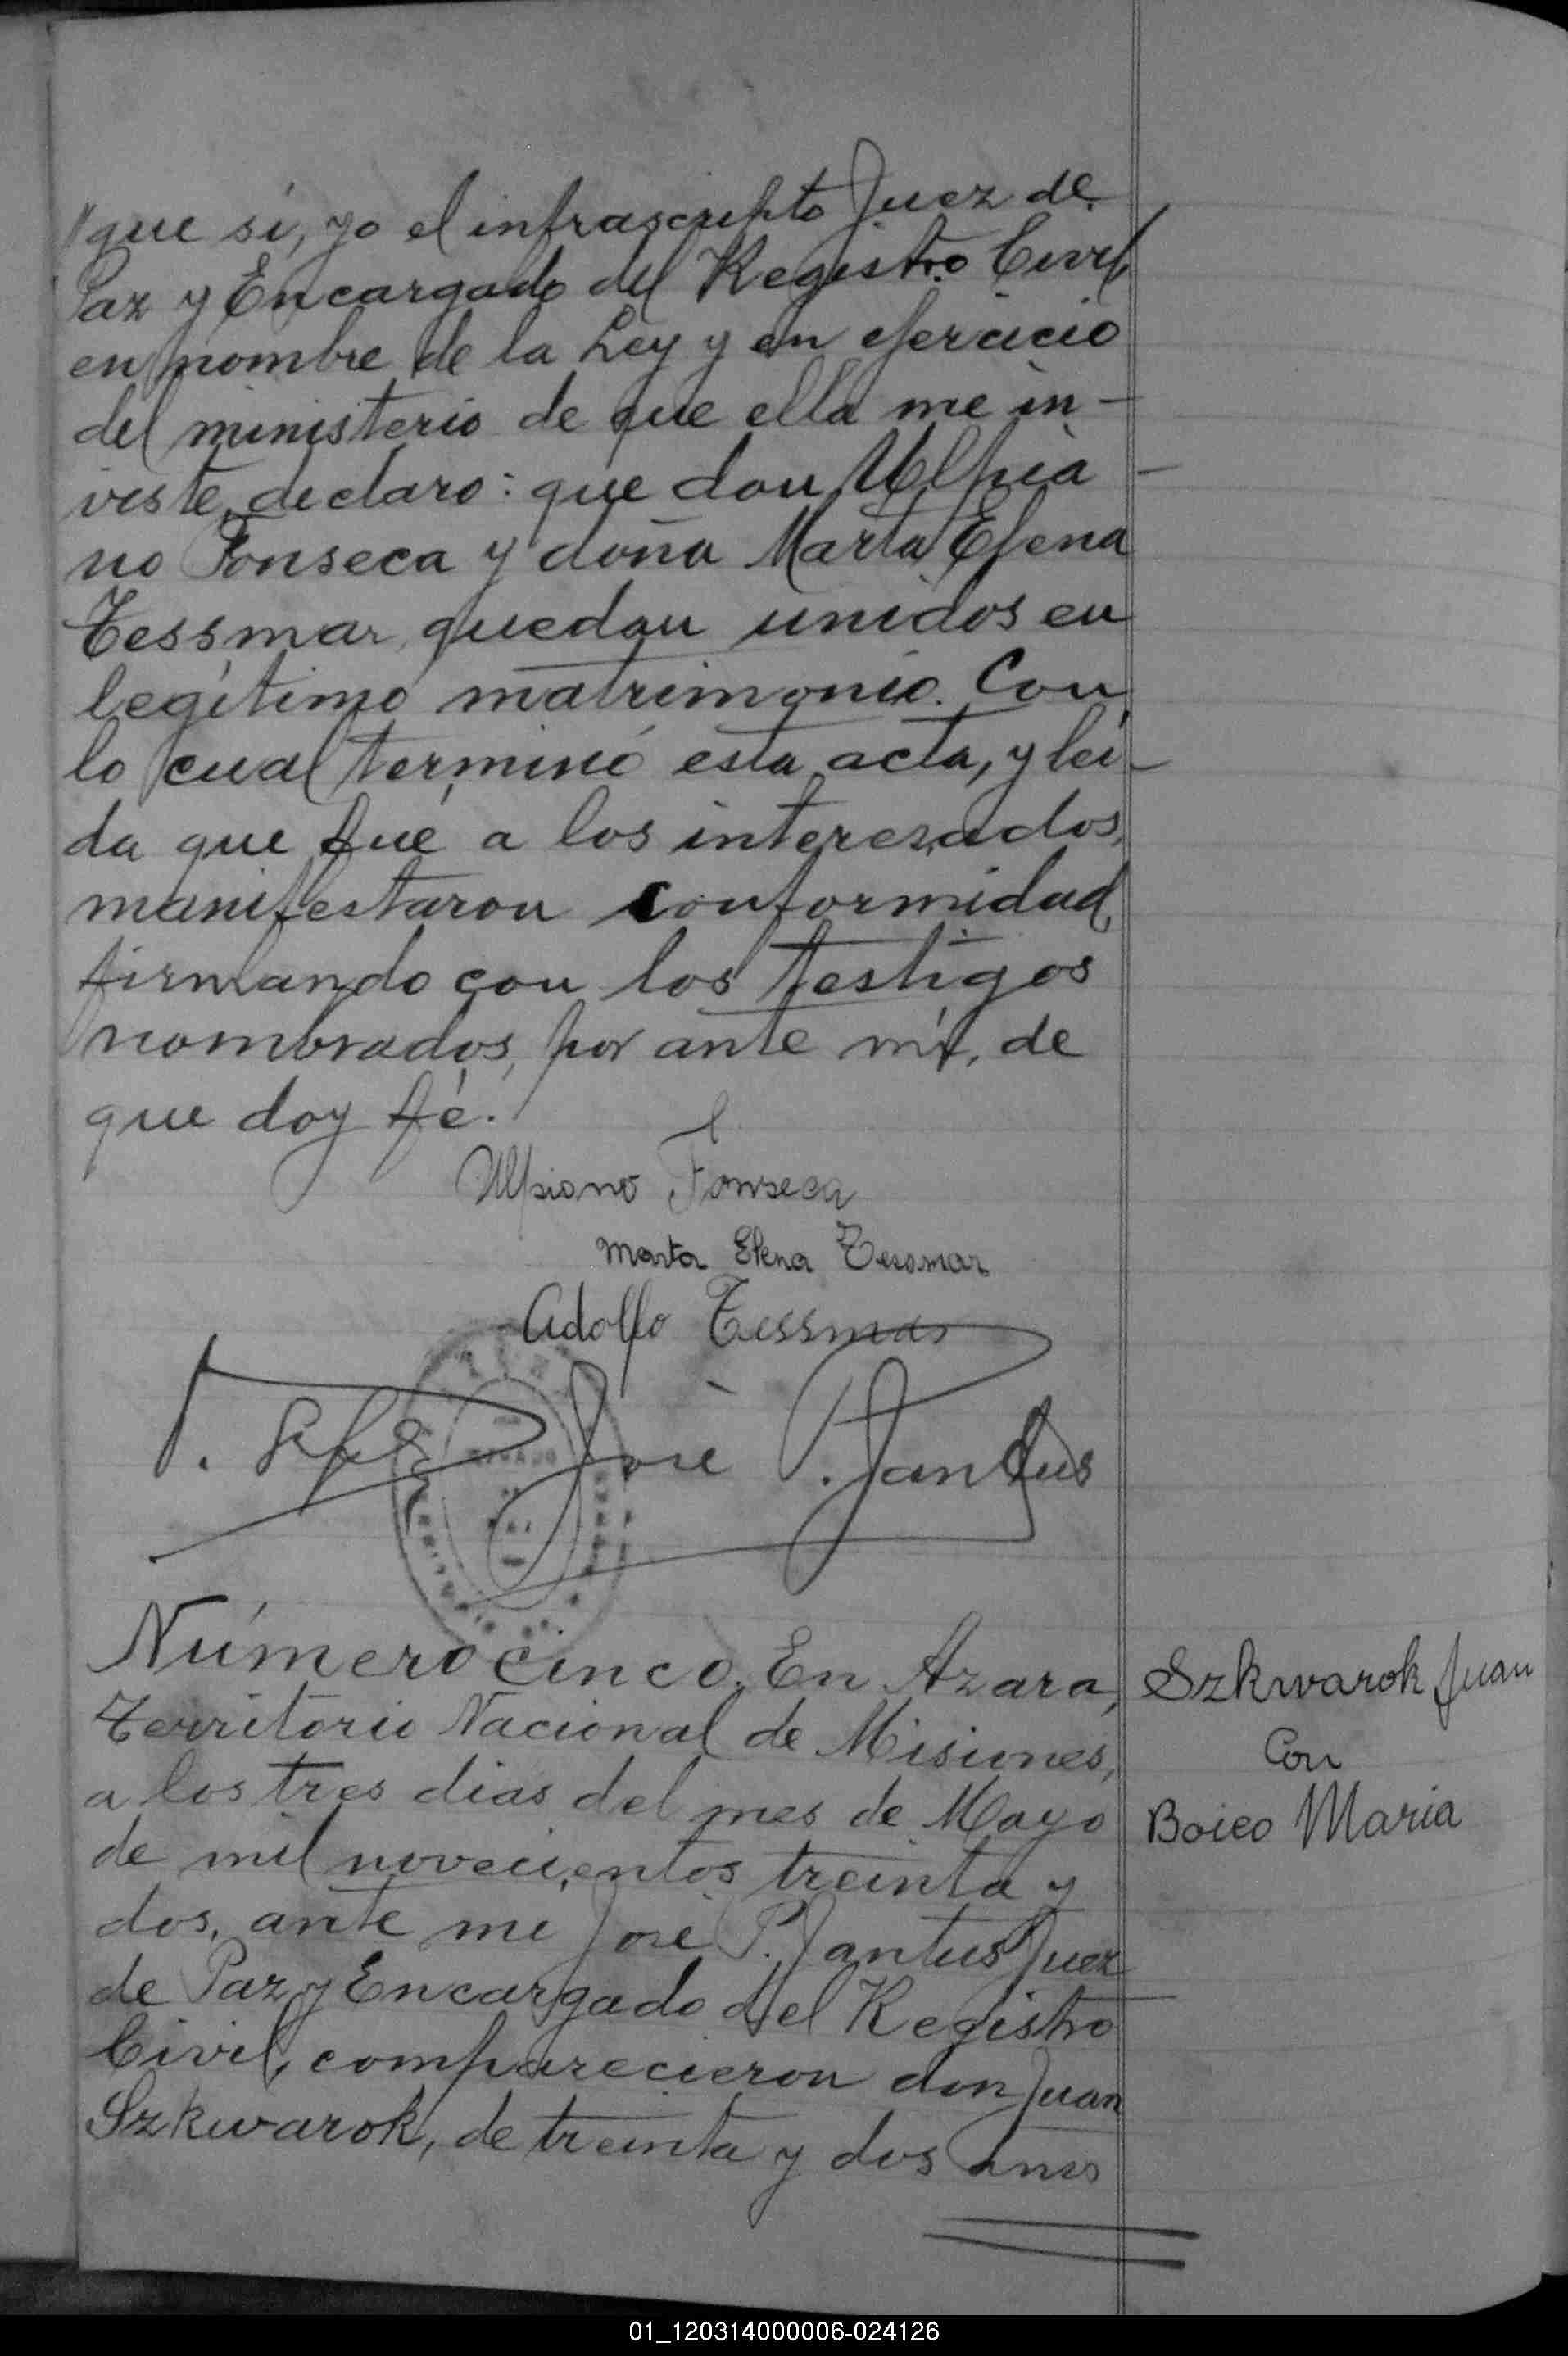 "que sí, yo el infrascripto Juez de
Paz y Encargado del Registro Civil,
en nombre de la Ley y en ejercicio
del ministerio de que ella me in-
viste, declaro: que don Ulpia-
no Fonseca y doña Marta Elena
Tessmar, quedan unidos en
legítimo matrimonio. Con
lo cual terminó esta acta, y lei-
da que fué a los interesados,
manifestaron conformidad,
firmando con los testigos
nombrados, por ante mí, de
que doy fé.
Ulpiano Fonseca
Marta Elena Tessmar
Adolfo Tessmar
José P. Jantus
Número cinco. En Azara,
Territorio Nacional de Misiones,
a los tres dias del mes de Mayo
de mil novecientos treinta y
dos, ante mi José P. Jantus Juez
de Paz y Encargado del Registro
Civil, comparecieron don Juan
Szkwarok, de treinta y dos años
Szkwarok Juan
Con
Boico Maria
01_120314000006-024126